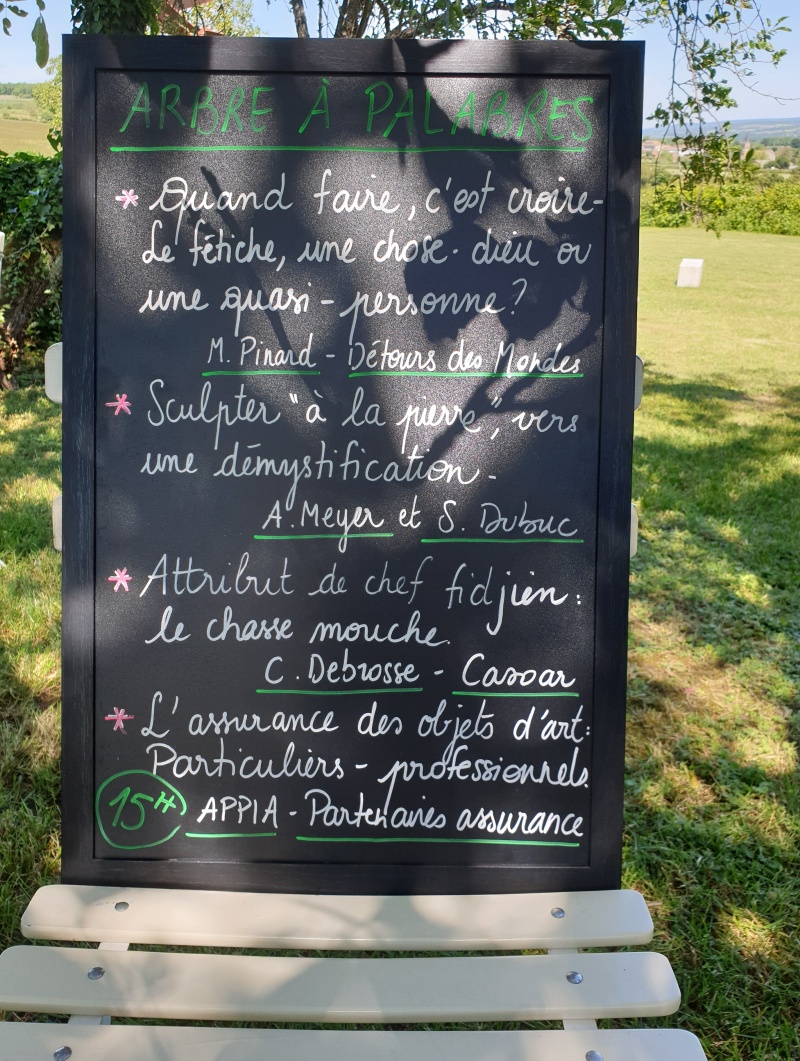 ARBRE À PALABRES
* Quand faire, c'est croire -
Le fétiche, une chose. dieu ou
une quasi - personne ?
M. Pinard - Détours des Mondes
* Sculpter "à la pierre", vers
une démystification -
A. Meyer et S. Dubuc
* Attribut de chef fidjien :
le chasse mouche.
C. Debrosse - Casoar
* L'assurance des objets d'art :
Particuliers - professionnels.
15H APPIA - Partenaires assurance